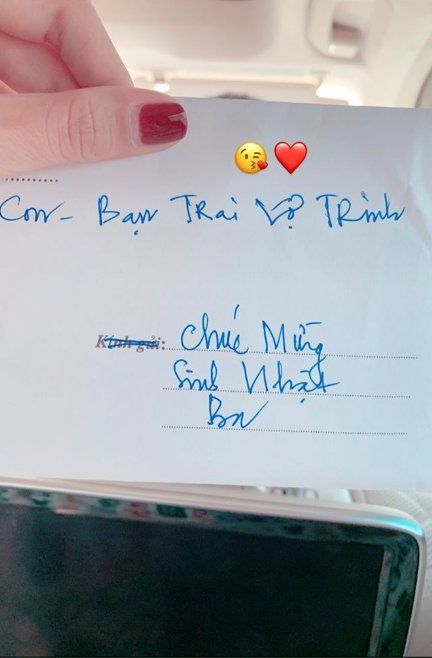 Con- Bạn TRai Vợ TRinh
Kính gửi: Chúc Mừng
Sinh Nhật
Ba